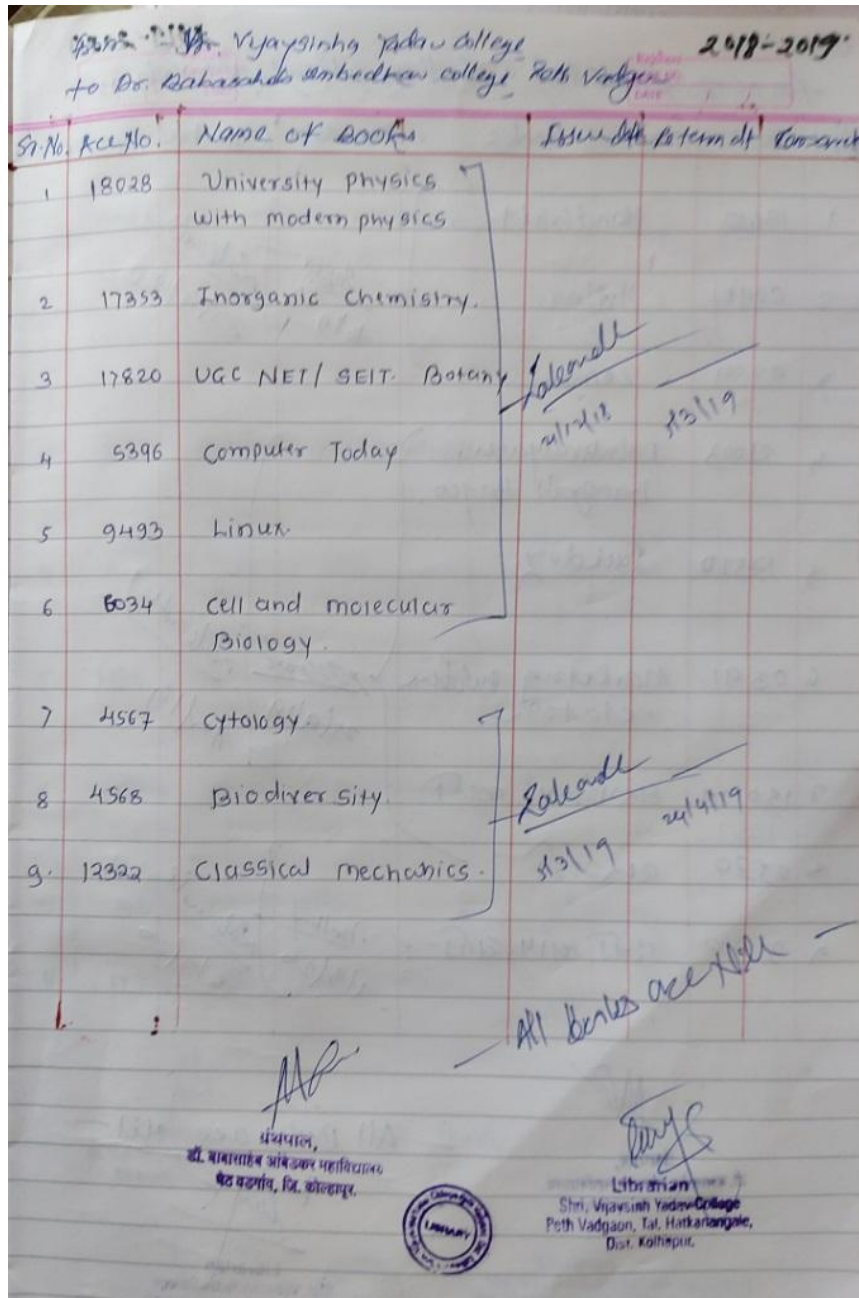 Vijaysinha Yadav College 2018-2019
to Dr. Babasaheb Ambedkar college Peth Vadgaon
Sr.No. Acc No. Name of Books Issue Date Return dt
1 18028 University physics
with modern physics
2 17353 Inorganic Chemistry.
3 17820 UGC NET/ SEIT. Botany
21/12/18 5/3/19
4 5396 Computer Today
5 9493 Linux.
6 6034 cell and molecular
Biology.
7 4567 Cytology
8 4568 Biodiversity
24/4/19
9. 12322 Classical mechanics.
5/3/19
All books are Nill
ग्रंथपाल,
डॉ. बाबासाहेब आंबेडकर महाविद्यालय
पेठ वडगांव, जि. कोल्हापूर.
LIBRARY
Librarian
Shri. Vijaysinh Yadav College
Peth Vadgaon, Tal. Hatkanangale,
Dist. Kolhapur.